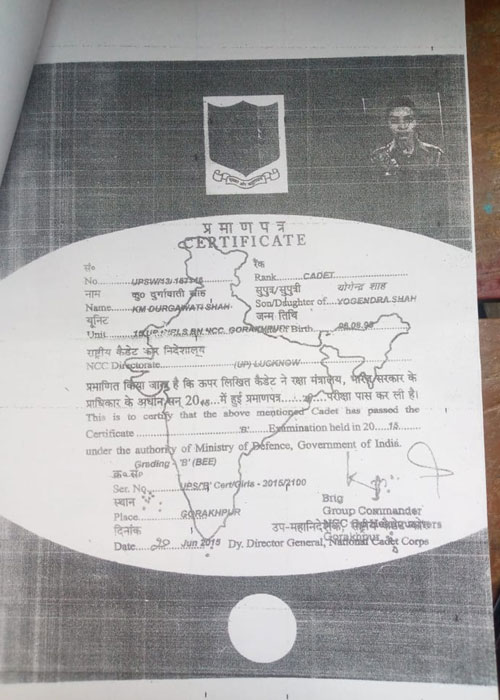 प्रमाणपत्र
CERTIFICATE
सं०
No.
रैंक
Rank CADET
नाम कु० दुर्गावती शाह
Name KM DURGAWATI SHAH
सुपुत्र/सुपुत्री योगेन्द्र शाह
Son/Daughter of YOGENDRA SHAH
यूनिट
Unit GIRLS BN NCC, GORAKHPUR
जन्म तिथि
Birth
राष्ट्रीय कैडेट कोर निदेशालय
NCC Directorate (UP) LUCKNOW
प्रमाणित किया जाता है कि ऊपर लिखित कैडेट ने रक्षा मंत्रालय, भारत सरकार के
प्राधिकार के अधीन सन् 20 में हुई प्रमाणपत्र परीक्षा पास कर ली है।
This is to certify that the above mentioned Cadet has passed the
Certificate 'B' Examination held in 20 15
under the authority of Ministry of Defence, Government of India.
Grading - 'B' (BEE)
क्र०सं०
Ser. No. UPS/'B' Cert/Girls - 2015/2100
स्थान
Place GORAKHPUR
Brig
Group Commander
NCC Group Headquarters
Gorakhpur
दिनांक
Date 20 Jun 2015
उप-महानिदेशक, राष्ट्रीय कैडेट कोर
Dy. Director General, National Cadet Corps